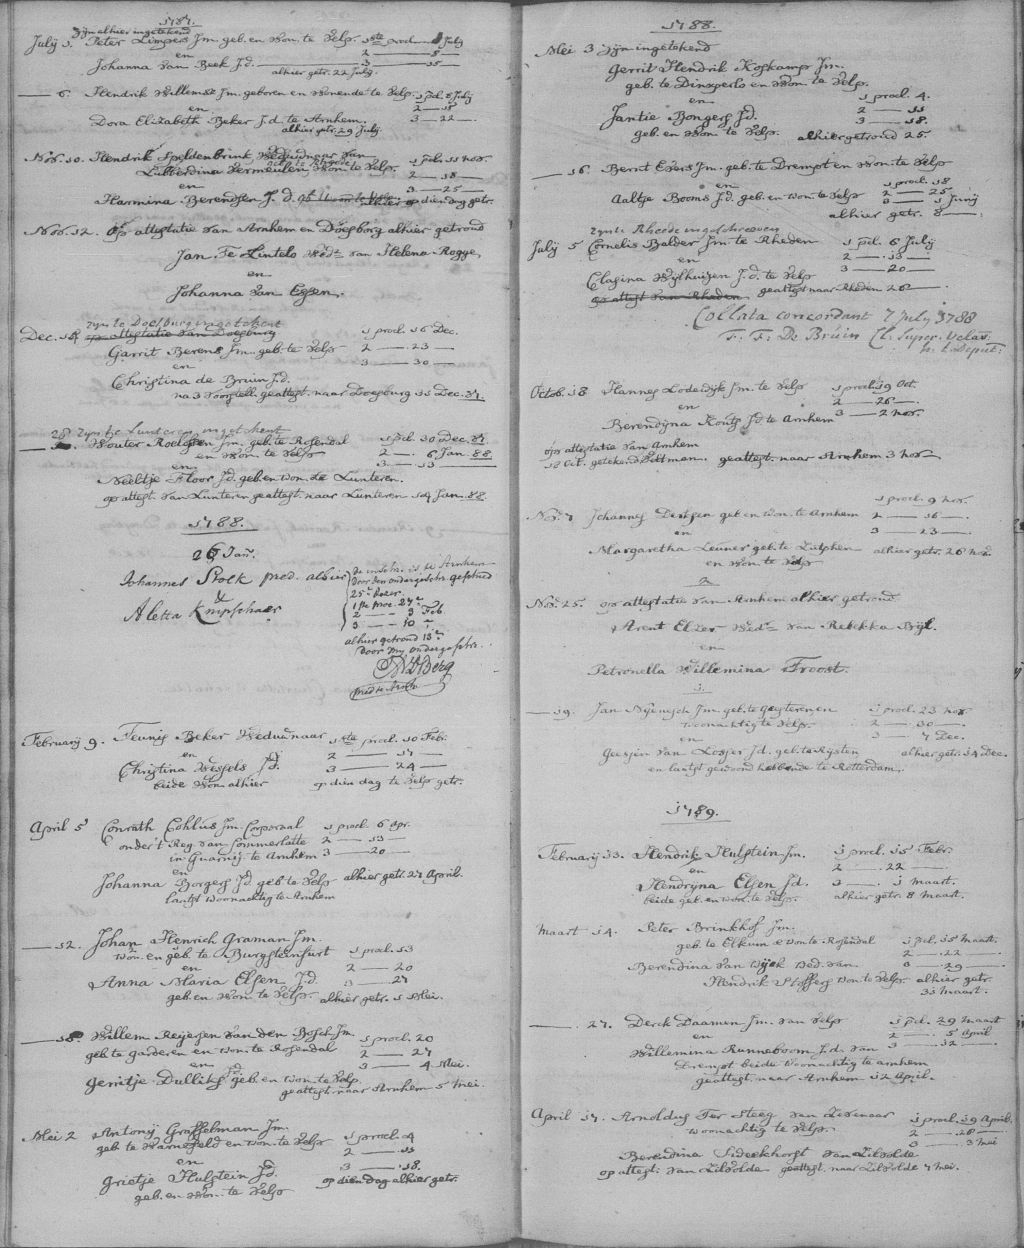 1787.
Zijn alhier ingetekend
July 5. Peter Limpers Jm. geb. en Won. te Velp. 1ste procl. 8 July
en 2 — 8 —
Johanna van Beek J.d. 3 — 15 —
alhier getr. 22 July.
— 6. Hendrik Willemse Jm. geboren en Wonende te Velp. 1 pcl. 8 July
en 2 — 15
Dora Elizabeth Beker J.d. te Arnhem. 3 — 22 —.
alhier getr. 29 July.
Nov. 10. Hendrik Speldenbrink Weduwnaar van
Lubberdina Vermeulen Won. te Velp. 1 pcl. 11 Nov.
2 — 18 —
en 3 — 25 —
Harmina Berendsen J.d. alhier op dien dag getr.
Nov. 12. Op attestatie van Arnhem en Doesborg alhier getroud
Jan Te Lintelo Wedr. van Helena Rogge
en
Johanna van Essen.
zyn te Doesburg ingetekent
Dec. 14 op attestatie van Doesburg 1 procl. 16 Dec.
Garrit Berens Jm. geb. te Velp 2 — 23 —
en 3 — 30 —
Christina de Bruin J.d.
na 3 voorstell. geattest. naar Doesburg 31 Dec. 87.
28 Zyn te Lunteren ingetekent
Wouter Roelofsen Jm. geb. te Rosendal 1 pcl. 30 Dec. 87.
en Won. te Velp 2 — 6 Jan. 88
en 3 — 13 —
Neeltje Floor J.d. geb. en won. te Lunteren.
op attest. van Lunteren geattest. naar Lunteren 14 Jan. 88.
1788.
26 Jan.
Johannes Stock pred. alhier de inschr. is te Arnhem
& door den ondergeschr. geschied
Aletta Knipschaer 25e dezer.
1ste proc. 27e
2 — — 3 Feb.
3 — — 10 —
alhier getroud 13e
door my ondergeschr.
Berg
pred. te Arnhem
Februarij 9. Teunis Beker Weduwnaar 1ste procl. 10 Febr.
en 2 — 17 —
Christina Wessels J.d. 3 — 24 —
beide Won. alhier op dien dag te Velp getr.
April 5 Conrath Cohlus Jm. Corporaal 1 procl. 6 Apr.
onder 't Reg. van Sommerlatte 2 — 13 —
in Guarnij te Arnhem 3 — 20 —
en
Johanna Borgers J.d. geb. te Velp alhier getr. 27 April.
laatst woonachtig te Arnhem
— 12. Johan Henrich Graman Jm.
won. en geb. te Burgsteinfurt 1 procl. 13
en 2 — 20
Anna Maria Elsen J.d. 3 — 27
geb. en Won. te Velp alhier getr. 1 Mei.
— 18. Willem Reijersen van den Bosch Jm.
geb. te garderen en won. te Rosendal 1 procl. 20
en 2 — 27
Gerritje Dullits J.d. geb. en won. te Velp 3 — 4 Mei.
geattest. naar Arnhem 5 mei.
Mei 2 Antonij Graffelman Jm.
geb. te Warnsfeld en won. te Velp 1 procl. 4
en 2 — 11
Grietje Hulstein J.d. 3 — 18.
geb. en won. te Velp op dien dag alhier getr.
1788.
Mei 3 zijn ingetekend
Gerrit Hendrik Koskamp Jm.
geb. te Dinxperlo en Won. te Velp.
en 1 procl. 4.
Jantie Bongers J.d. 2 — 11
geb. en won. te Velp. 3 — 18.
alhier getroud 25.
— 16. Bernt Evers Jm. geb. te Drempt en Won. te Velp
en 1 procl. 18
Aaltje Booms J.d. geb. en won. te Velp 2 — 25
3 — 1 Junij
alhier getr. 8 —.
zyn te Rheden ingeschreeven
July 5 Cornelis Balder Jm. te Rheden 1 pcl. 6 July
en 2 — 13 —
Clasina Wijlhuizen J.d. te Velp 3 — 20 —
op attest. van Rheden geattest naar Rheden 26 —
Collata concordant 7 July 1788
F. F. De Bruin Cl. Super. Velav.
h. t. Deput:
Octob. 18 Hannes Lodewijk Jm. te Velp 1 procl. 19 Oct.
en 2 — 26 —.
Berendina Kouts J.d. te Arnhem 3 — 2 Nov.
op attestatie van Arnhem
18 Oct. geteken. geattest. naar Arnhem 3 Nov.
1 procl. 9 Nov.
Nov. 7 Johannes Derksen geb. en won. te Arnhem 2 — 16 —.
en 3 — 23 —.
Margaretha Leuner geb. te Zutphen alhier getr. 26 Nov.
en Won. te Velp
Nov. 25. op attestatie van Arnhem alhier getroud
Arent Elzer Wedr. van Rebekka Bijl.
en
Petronella Willemina Froost.
— 19. Jan Jm. geb. te en 1 procl. 23 Nov.
woonachtig te Velp. 2 — 30 —.
en 3 — 7 Dec.
Geesjen van Losser J.d. geb. te Rijsten alhier getr. 14 Dec.
en laatst gewoond hebbende te Rotterdam.
1789.
Februarij 13. Hendrik Hulstein Jm. 1 procl. 15 Febr.
en 2 — 22 —
Hendrijna Elsen J.d. 3 — 1 Maart.
beide geb. en won. te Velp. alhier getr. 8 Maart.
Maart 14. Peter Brinkhof Jm.
geb. te Elkum e won te Rosendal 1 pcl. 15 Maart.
en 2 — 22 —
Berendina van Wijck Wed. van 3 — 29 —
Hendrik Stoffers won te Velp. alhier getr.
31 Maart.
— 27. Derck Daamen Jm. van Velp 1 pcl. 29 Maart
en 2 — 5 April
Willemina Runneboom J.d. van 3 — 12 —
Drempt beide woonachtig te Arnhem
geattest. naar Arnhem 12 April.
April 17. Arnoldus Ter Steeg van Zevenaar 1 procl. 19 April.
woonachtig te Velp. 2 — 26 —
3 — 3 Mei
Berendina Sideekhorst van Zilvolde
op attest: van Zilvolde geattest. naar Zilvolde 4 Mei.